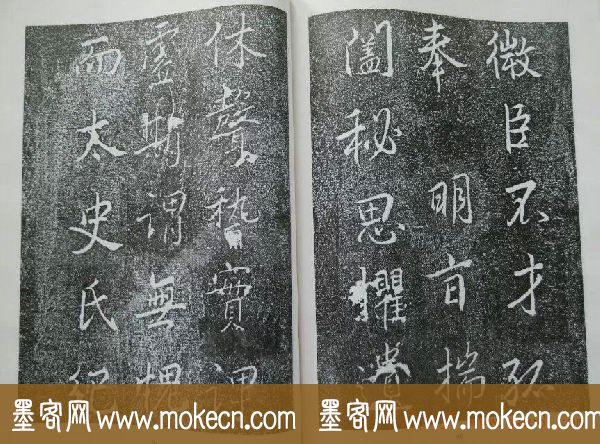 微臣不才
奉明旨揣
闔秘思懼遺
休聲稽實課
虛斯謂無愧
而太史氏
墨客网 www.mokecn.com
墨客网 www.mokecn.com